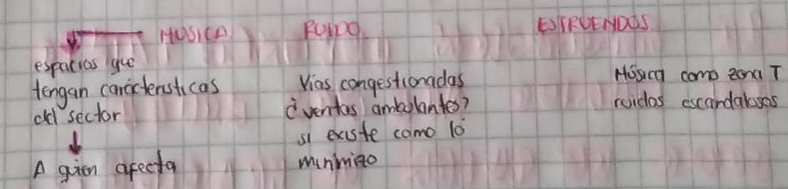 MUSICA
espacios que
tengan carácteristicas
del sector
A quien afecta
RUIDO
Vías congestionadas
¿ventas ambulantes?
si existe como lo
minimizo
ESTRUENDOS
Música como zona T
ruidos escandalosos